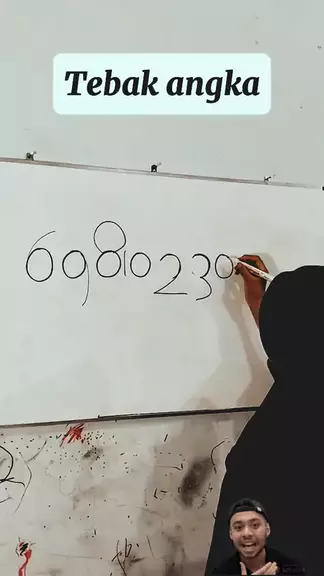 Tebak angka
69810230